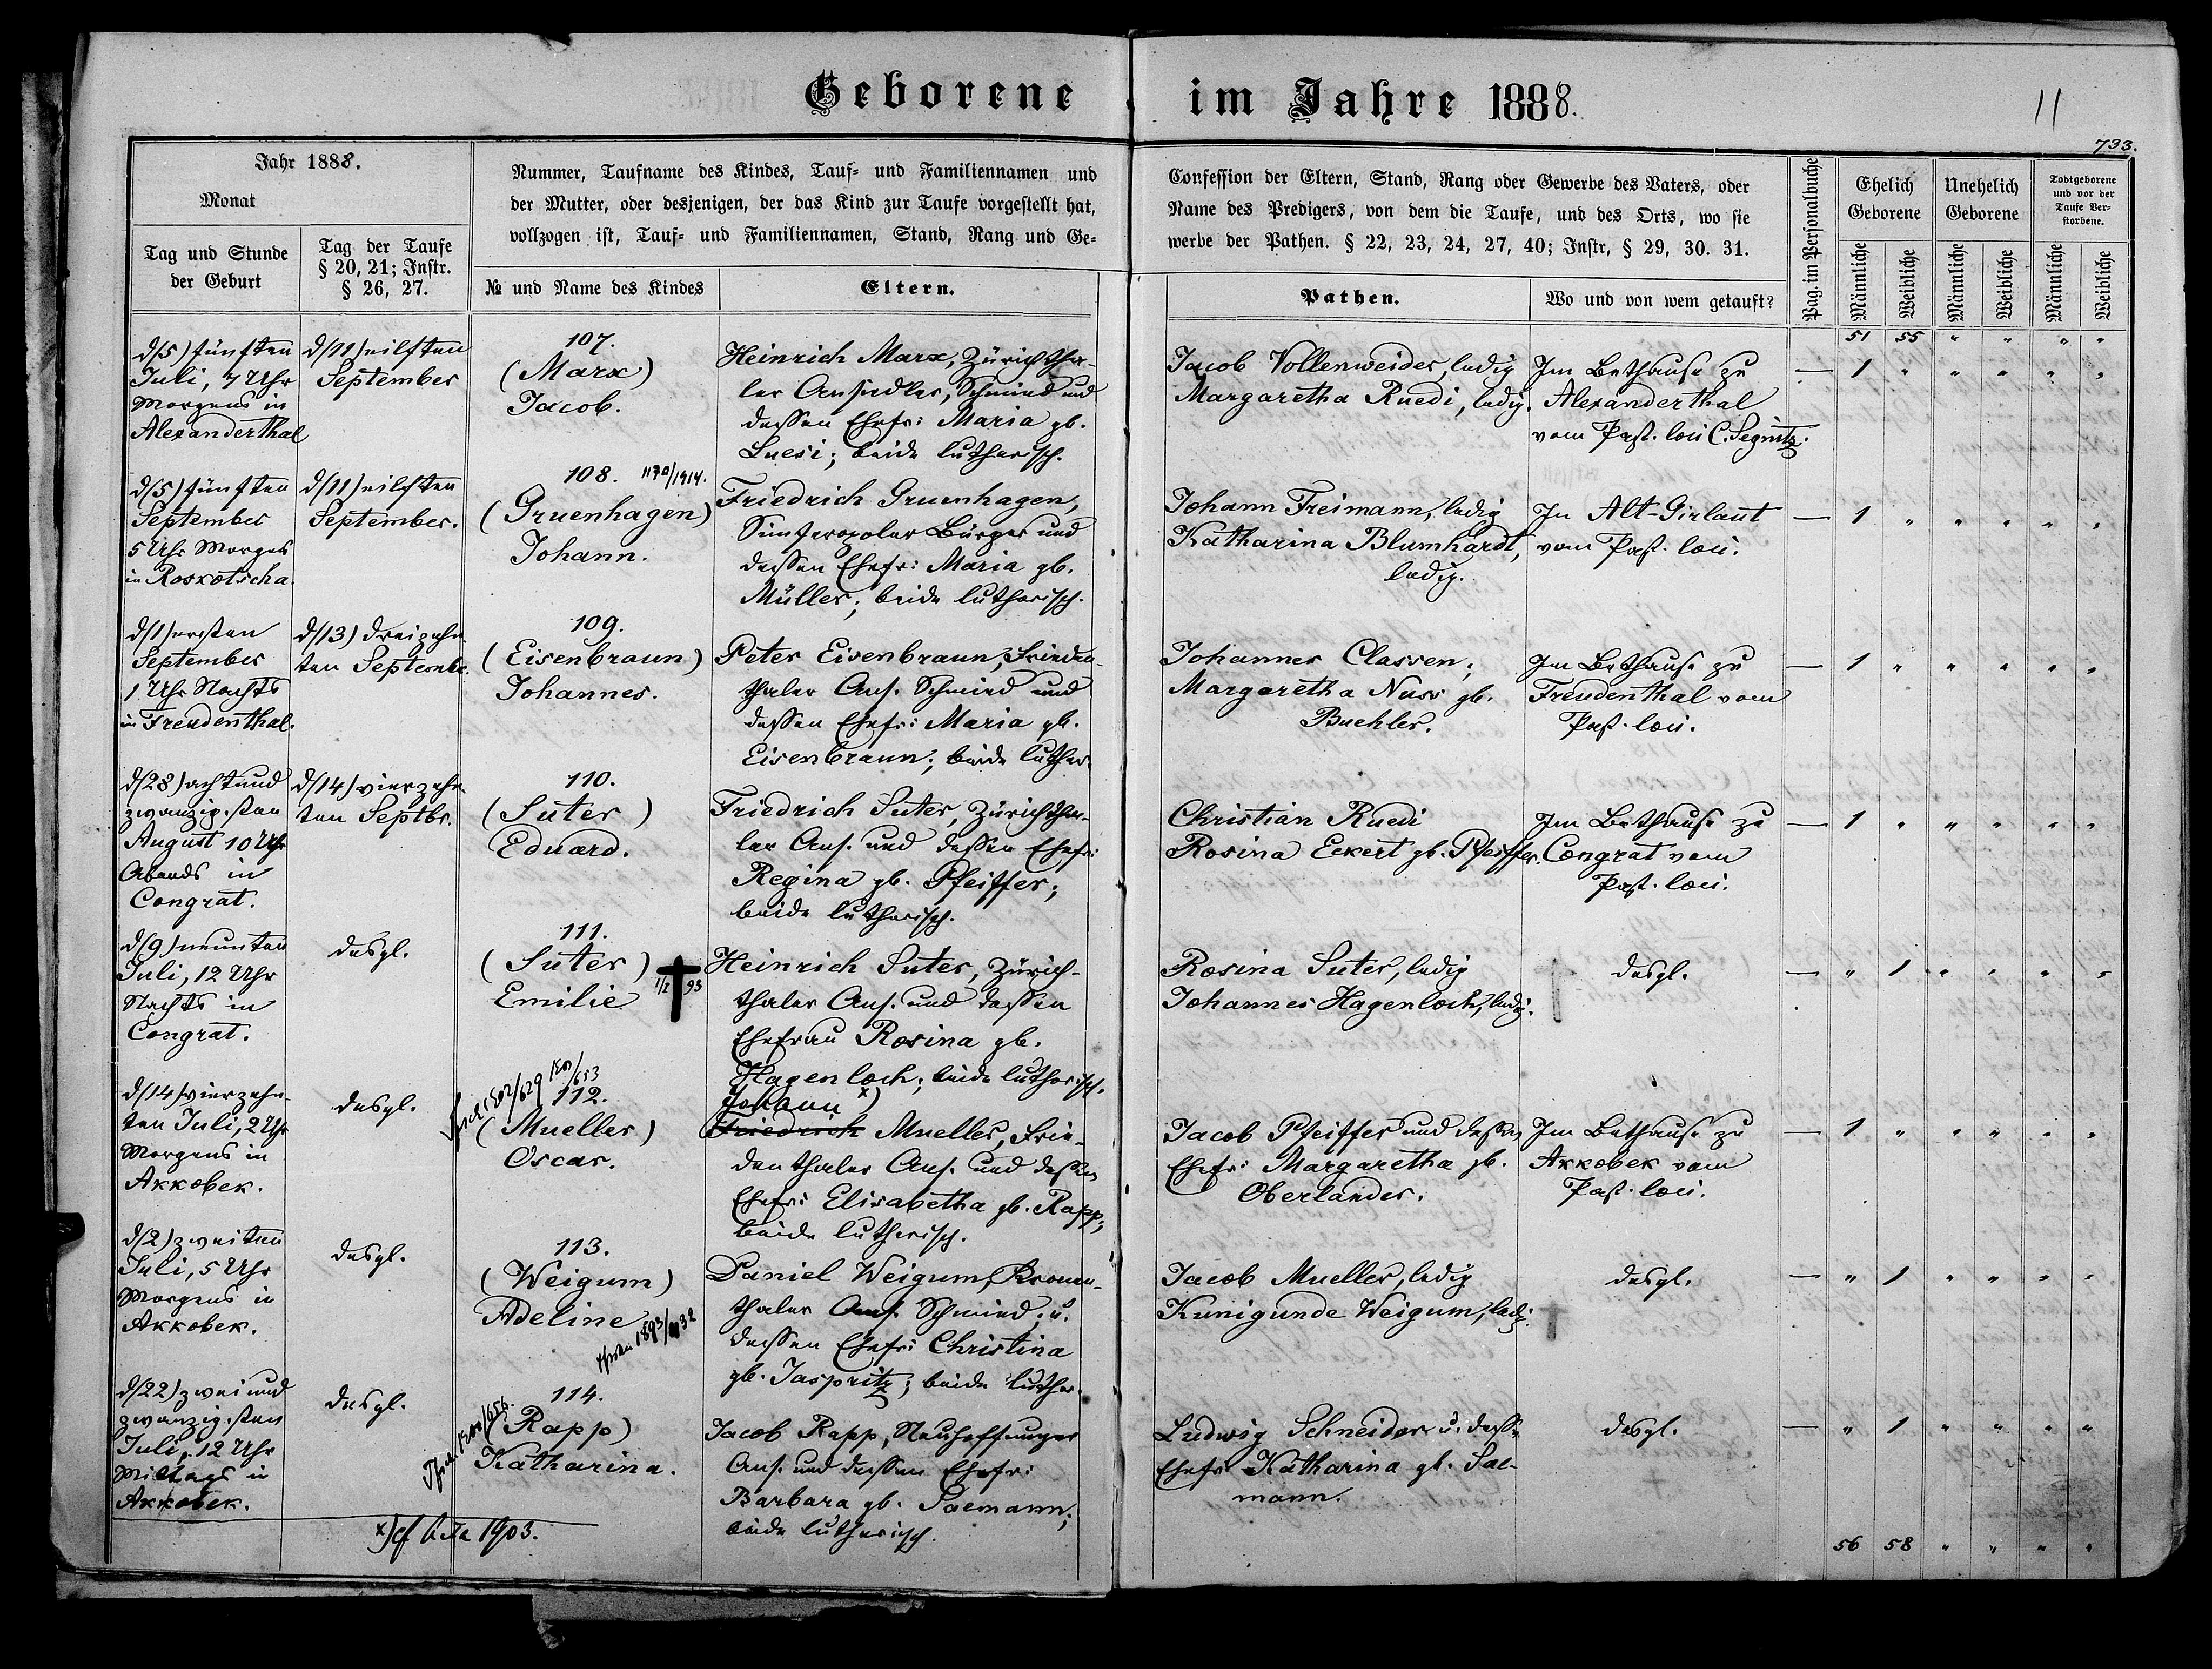 Geborene im Jahre 1888.
11
733.
Jahr 1888.
Monat
Tag und Stunde
der Geburt
Tag der Taufe
§ 20, 21; Instr.
§ 26, 27.
Nummer, Taufname des Kindes, Tauf- und Familiennamen und
der Mutter, oder desjenigen, der das Kind zur Taufe vorgestellt hat,
vollzogen ist, Tauf- und Familiennamen, Stand, Rang und Ge-
№ und Name des Kindes
Eltern.
Confession der Eltern, Stand, Rang oder Gewerbe des Vaters, oder
Name des Predigers, von dem die Taufe, und des Orts, wo sie
werbe der Pathen. § 22, 23, 24, 27, 40; Instr, § 29, 30. 31.
Pathen.
Wo und von wem getauft?
Pag. im Personalbuche
Ehelich
Geborene
Unehelich
Geborene
Todtgeborene
und vor der
Taufe Ver-
storbene.
Männliche
Weibliche
Männliche
Weibliche
Männliche
Weibliche
51 55 " " " "
d/5) fünften
Juli, 7 Uhr
Morgens in
Alexanderthal
d/11) eilften
September
107.
(Marx)
Jacob.
Heinrich Marx, Zürichtha-
ler Ansiedler, Schmied und
dessen Ehefr: Maria gb.
Luesi; beide lutherisch.
Jacob Vollenweider, ledig
Margaretha Ruedi, ledig.
Im Bethause zu
Alexanderthal
vom Past. loci C. Segnitz.
— 1 " " " " "
d/5) fünften
September
5 Uhr Morgens
in Roskotscha.
d/11) eilften
September.
108. 1170/1914.
(Gruenhagen)
Johann.
Friedrich Gruenhagen,
Simferopoler Bürger und
dessen Ehefr: Maria gb.
Müller; beide lutherisch.
Johann Freimann, ledig
Katharina Blumhardt,
ledig.
In Alt-Girlaut
vom Past. loci.
— 1 " " " " "
d/1) ersten
September
1 Uhr Nachts
in Freudenthal.
d/13) dreizehn-
ten Septembr.
109.
(Eisenbraun)
Johannes.
Peter Eisenbraun, Frieden-
thaler Ans. Schmied und
dessen Ehefr: Maria gb.
Eisenbraun; beide luther.
Johannes Classen;
Margaretha Nuss gb.
Buehler.
Im Bethause zu
Freudenthal vom
Past. loci.
— 1 " " " " "
d/28) achtund
zwanzigsten
August 10 Uhr
Abends in
Congrat.
d/14) vierzehn-
ten Septbr.
110.
(Suter)
Eduard.
Friedrich Suter, Zürichtha-
ler Ans. und dessen Ehefr:
Regina gb. Pfeiffer;
beide lutherisch.
Christian Ruedi
Rosina Eckert gb. Pfeiffer.
Im Bethause zu
Congrat vom
Past. loci.
— 1 " " " " "
d/9) neunten
Juli, 12 Uhr
Nachts in
Congrat.
desgl.
111.
(Suter)
Emilie
93
Heinrich Suter, Zürich-
thaler Ans. und dessen
Ehefrau Rosina gb.
Hagenloch; beide lutherisch.
Rosina Suter, ledig
Johannes Hagenloch, ledig.
desgl.
— " 1 " " " "
d/14) vierzehn-
ten Juli, 2 Uhr
Morgens in
Akkobek.
desgl.
112.
(Mueller)
Oscar.
Johann x)
Friedrich Mueller, Frie-
denthaler Ans. und dessen
Ehefr: Elisabetha gb. Rapp;
beide lutherisch.
Jacob Pfeiffer und dessen
Ehefr: Margaretha gb.
Oberlander.
Im Bethause zu
Akkobek vom
Past. loci.
— 1 " " " " "
d/2) zweiten
Juli, 5 Uhr
Morgens in
Akkobek.
desgl.
113.
(Weigum)
Adeline
Daniel Weigum, Kronen-
thaler Ans. Schmied; u.
dessen Ehefr: Christina
gb. Jaspritz; beide luther.
Jacob Mueller, ledig
Kunigunde Weigum, ledig.
desgl.
— " 1 " " " "
d/22) zwei und
zwanzigsten
Juli, 12 Uhr
Mittags in
Akkobek.
desgl.
114.
(Rapp)
Katharina.
Jacob Rapp, Neuhoffnunger
Ans. und dessen Ehefr:
Barbara gb. Saemann;
beide lutherisch.
Ludwig Schneider u. dess.
Ehefr Katharina gb. Sae-
mann.
desgl.
— " 1 " " " "
x) cf Acta 1903.
56 58 " " " "